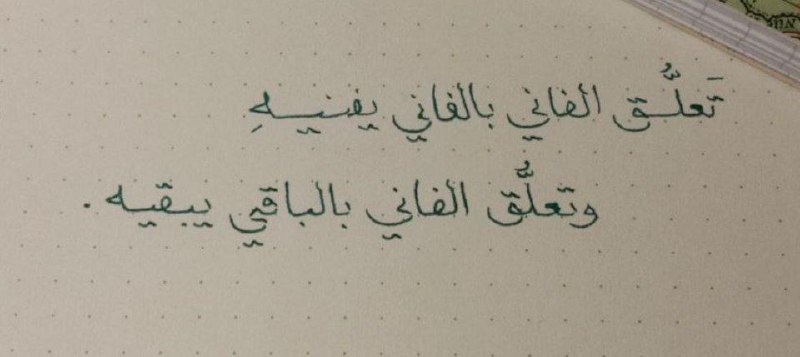 تَعلُّق الفاني بالفاني يفنيهِ
وتعلُّق الفاني بالباقي يبقيه.